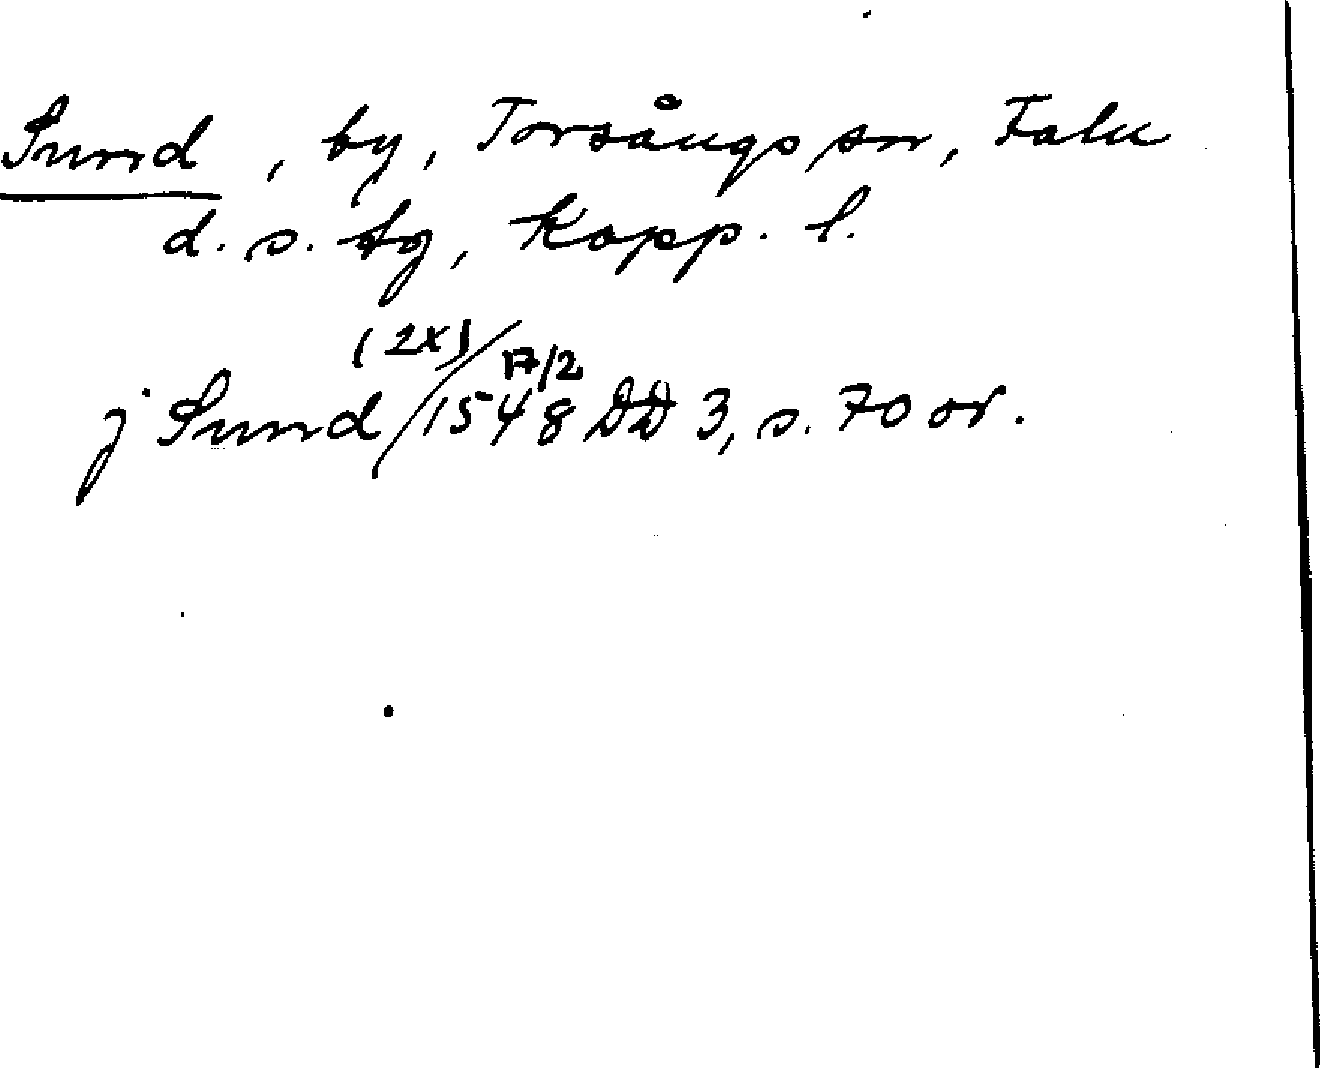 Sund, by, Torsångs sn, Falu
d. s. tg, Kopp. l.
(2x) 17/2
j Sund / 1548 DD 3, s. 70 or.